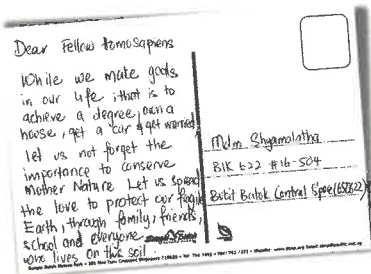 Dear Fellow Homosapiens
While we mate goals
in our life ; that is to
achieve a degree, own a
house, get a car & get married,
let us not forget the
importance to conserve
Mother Nature Let us spread
the love to protect our fragile
Earth, through family, friends,
school and everyone
who lives on this soil.
Mdm Shyamalatha
Blk 622 #16-504
Bukit Batok Central S'pore (650622)